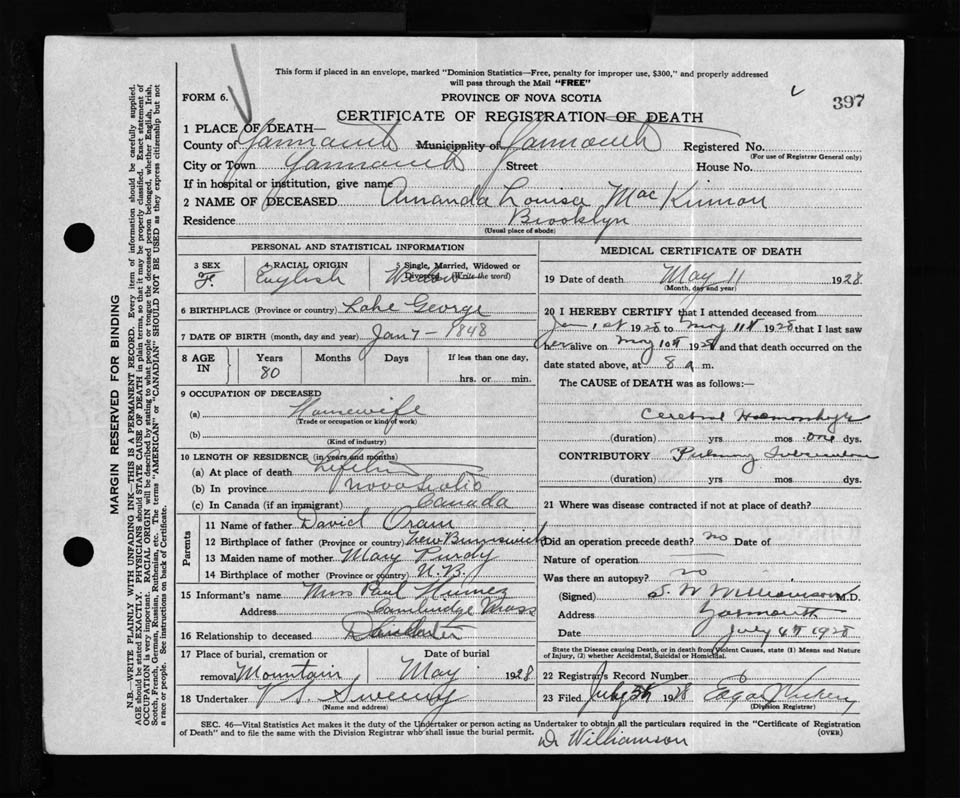 This form if placed in an envelope, marked "Dominion Statistics—Free, penalty for improper use, $300," and properly addressed
will pass through the Mail "FREE"
FORM 6. PROVINCE OF NOVA SCOTIA 397
CERTIFICATE OF REGISTRATION OF DEATH
1 PLACE OF DEATH—
County of Yarmouth Municipality of Yarmouth Registered No.
(For use of Registrar General only)
City or Town Yarmouth Street House No.
If in hospital or institution, give name
2 NAME OF DECEASED Amanda Louisa MacKinnon
Residence Brooklyn
(Usual place of abode)
PERSONAL AND STATISTICAL INFORMATION
3 SEX 4 RACIAL ORIGIN 5 Single, Married, Widowed or
Divorced (Write the word)
F. English Widow
6 BIRTHPLACE (Province or country) Lake George
7 DATE OF BIRTH (month, day and year) Jan 7 – 1848
8 AGE IN Years Months Days If less than one day,
80 hrs. or min.
9 OCCUPATION OF DECEASED
(a) Housewife
(Trade or occupation or kind of work)
(b)
(Kind of industry)
10 LENGTH OF RESIDENCE (in years and months)
(a) At place of death
(b) In province Nova Scotia
(c) In Canada (if an immigrant) Canada
Parents
11 Name of father David Oram
12 Birthplace of father (Province or country) New Brunswick
13 Maiden name of mother Mary Purdy
14 Birthplace of mother (Province or country) N.B.
15 Informant's name Mrs Paul
Address Cambridge Mass
16 Relationship to deceased Daughter
17 Place of burial, cremation or Date of burial
removal Mountain May 1928
18 Undertaker Sweeny
(Name and address)
MEDICAL CERTIFICATE OF DEATH
19 Date of death May 11 1928
(Month, day and year)
20 I HEREBY CERTIFY that I attended deceased from
Jan 1st 1928 to May 11th 1928 that I last saw
her alive on May 10th 1928 and that death occurred on the
date stated above, at 8 a m.
The CAUSE of DEATH was as follows:—
Cerebral Haemorrhage
(duration) yrs mos one dys.
CONTRIBUTORY Pulmonary Tuberculosis
(duration) yrs. mos. dys.
21 Where was disease contracted if not at place of death?
Did an operation precede death? no Date of
Nature of operation
Was there an autopsy? no
(Signed) S. W Williamson M.D.
Address Yarmouth
Date July 4th 1928
State the Disease causing Death, or in death from Violent Causes, state (1) Means and Nature
of Injury, (2) whether Accidental, Suicidal or Homicidal.
22 Registrar's Record Number
23 Filed July 1928 Edgar
(Division Registrar)
SEC. 46—Vital Statistics Act makes it the duty of the Undertaker or person acting as Undertaker to obtain all the particulars required in the "Certificate of Registration
of Death" and to file the same with the Division Registrar who shall issue the burial permit. (OVER)
Dr Williamson
MARGIN RESERVED FOR BINDING
N.B.—WRITE PLAINLY WITH UNFADING INK—THIS IS A PERMANENT RECORD. Every item of information should be carefully supplied.
AGE should be stated EXACTLY. PHYSICIANS should STATE CAUSE OF DEATH in plain terms, so that it may be properly classified. Exact statement of
OCCUPATION is very important. RACIAL ORIGIN will be described by stating to what people or tongue the deceased person belonged, whether English, Irish,
Scotch, French, German, Russian, Ruthenian, etc. The terms "AMERICAN" or "CANADIAN" SHOULD NOT BE USED as they express citizenship but not
a race or people. See instructions on back of Certificate.